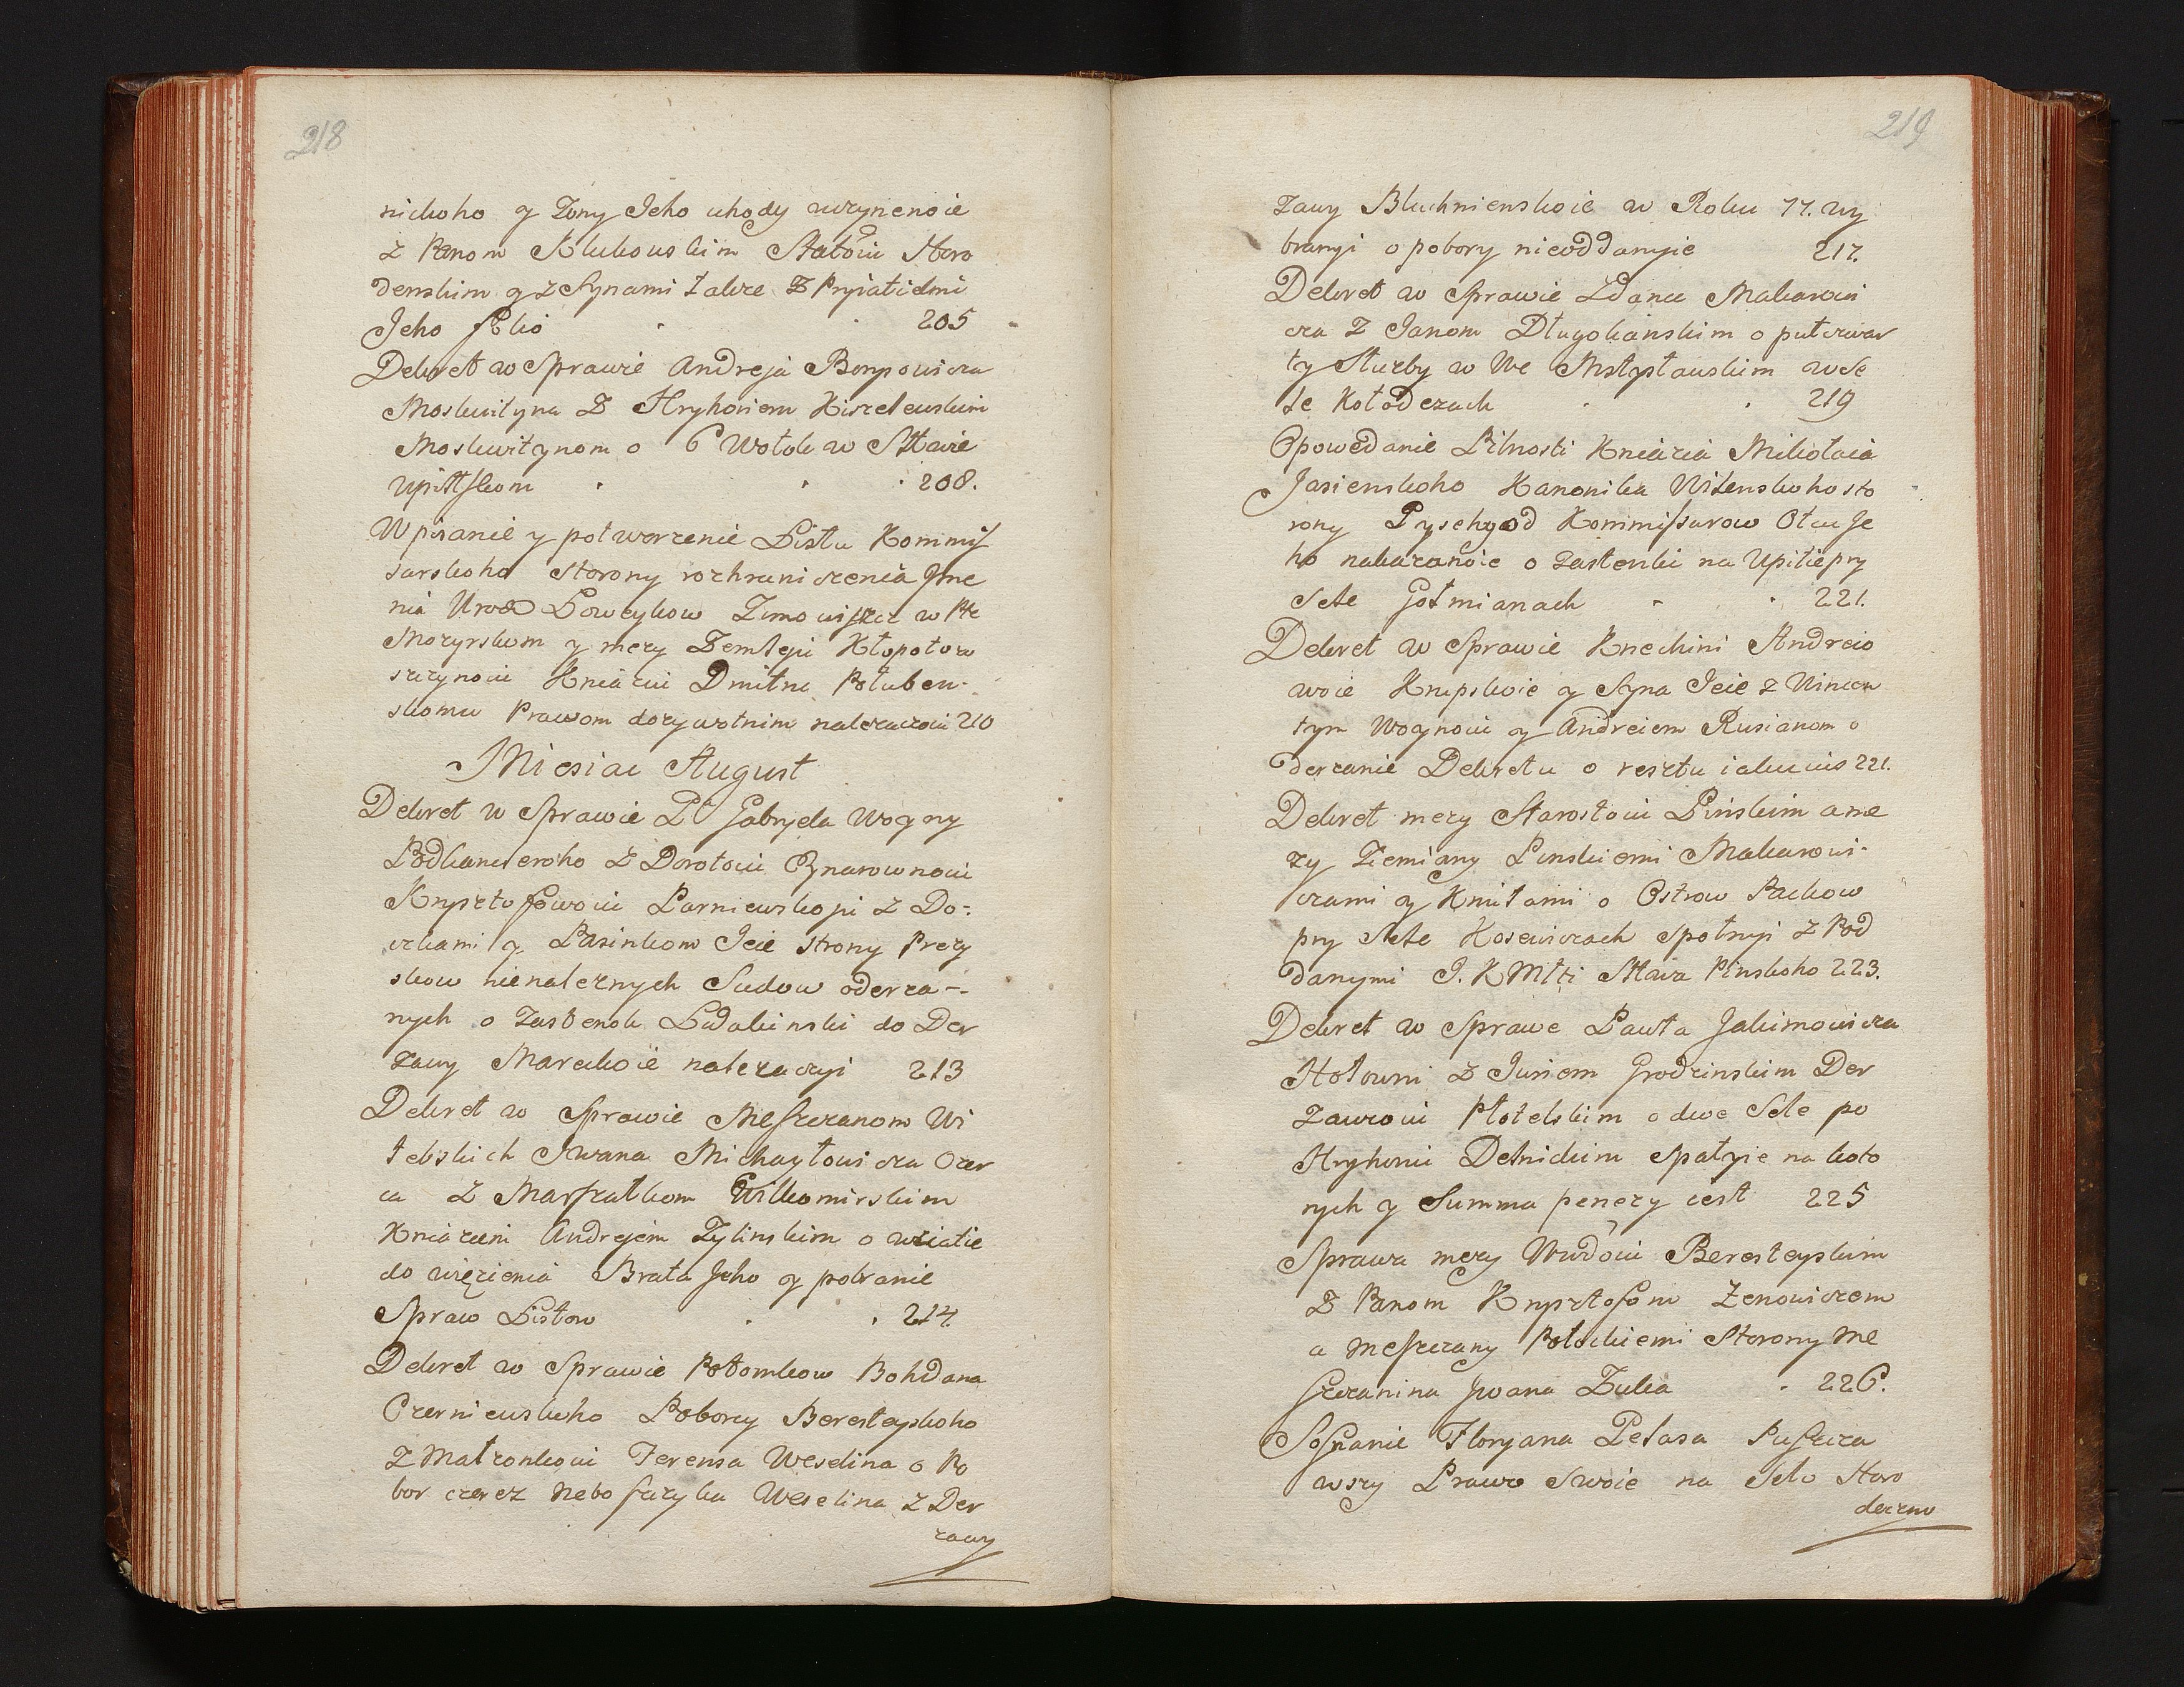 218
nickoho y Żony Jeho uhody uczynenoie
z Panom Klukouskim Statòiu Horo
denskim y z Synami Jakże z Pryiatielmi
Jeho folio . . 205
Dekret w Sprawie Andreja Borysowicza
Moskwityna z Hryhoriem Kiszelewskim
Moskwitynom o 6 Wołok w Sttawie
Upittskom . . . 208.
Wpisanie y potwerżenie Listu Kommis
sarskoho storony rozhraniczenia Jme
nia Uroż Łoweykow Zimowiszcz w Pte
Mozyrskom y meży Żemłeju Kłopotow
szczynoiu Kniaziu Dmitru Połuben-
skomu Prawom dożywotnim należaczoiu 210
Miesiac August
Dekret w Sprawie P. Gabryela Woyny
Podkancleroho z Dorotoiu Bynarownoiu
Krysztofowoiu Parniewskoju z Do-
czkami y Pasinkom Jeie strony Prezy
skow nienależnych Sudow oderża-
nych o Zastenok Ludakinski do Der
żawy Mareckoie należaczyi 213
Dekret w Sprawie Meszczanom Wi
tebskich Iwana Michayłowicza Ozer
ca z Marszałkom Wilkomirskim
Kniaziem Andrejem Żylinskim o wziatie
do więzienia Brata Jeho y pobranie
Spraw Listow . . 214.
Dekret w Sprawie Potomkow Bohdana
Czerniewskoho Poborcy Beresteyskoho
z Małżonkoiu Ferensa Weselina o Po
bor czerez Nebosczyka Weselina z Der
żawy
219
żawy Bluchnienskoie w Roku 77. wy
branyi o pobory nieoddanyie 217.
Dekret w Sprawie Żdana Makarowi
cza z Janom Długokanskim o pułczwar
ty Służby w We Mstysłauskim w Se
le Kołodezach . . 219
Opowedanie Pilnosti Kniazia Mikołaia
Jasienskoho Kanonika Wilenskoho sto
rony Prysehy od Kommissarow Otcu Je
ho nakazanoie o Zastenki na Upitie pry
Sele Gołmianach . . 221.
Dekret w Sprawie Knechini Andreio
woie Krupskoie y Syna Jeie z Wincen
tym Woynoiu y Andreiem Rusianom o
derżanie Dekretu o resztu iakuius 221.
Dekret meży Starostoiu Pinskim a me
ży Ziemiany Pinskiemi Makarowi-
czami y Kmitami o Ostrow Packow
pry Sele Kosewiczach społnyi z Pod
danymi J. K Mtti Sttawa Pinskoho 223.
Dekret w Sprawe Pawła Jakimowicza
Hołowni z Juriem Grodzinskim Der
żawcoiu Płotelskim o dwe Sele po
Hryhoriu Detnickim Spałyie na koto
rych y Summa penezy iest 225
Sprawa meży Wuidoiu Beresteyskim
z Panom Krysztofom Zenowiczem
a Meszczany Połockiemi Storony Me
szczanina Jwana Zuka . 226.
Soznanie Floryana Pełasa Puszcza
wszy Prawo Swoie na Seło Horo
deczno